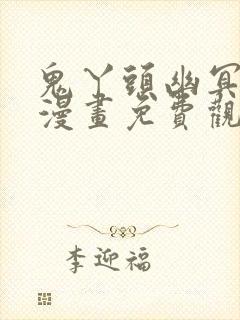 鬼丫頭幽冥
漫畫免費觀
李迎福